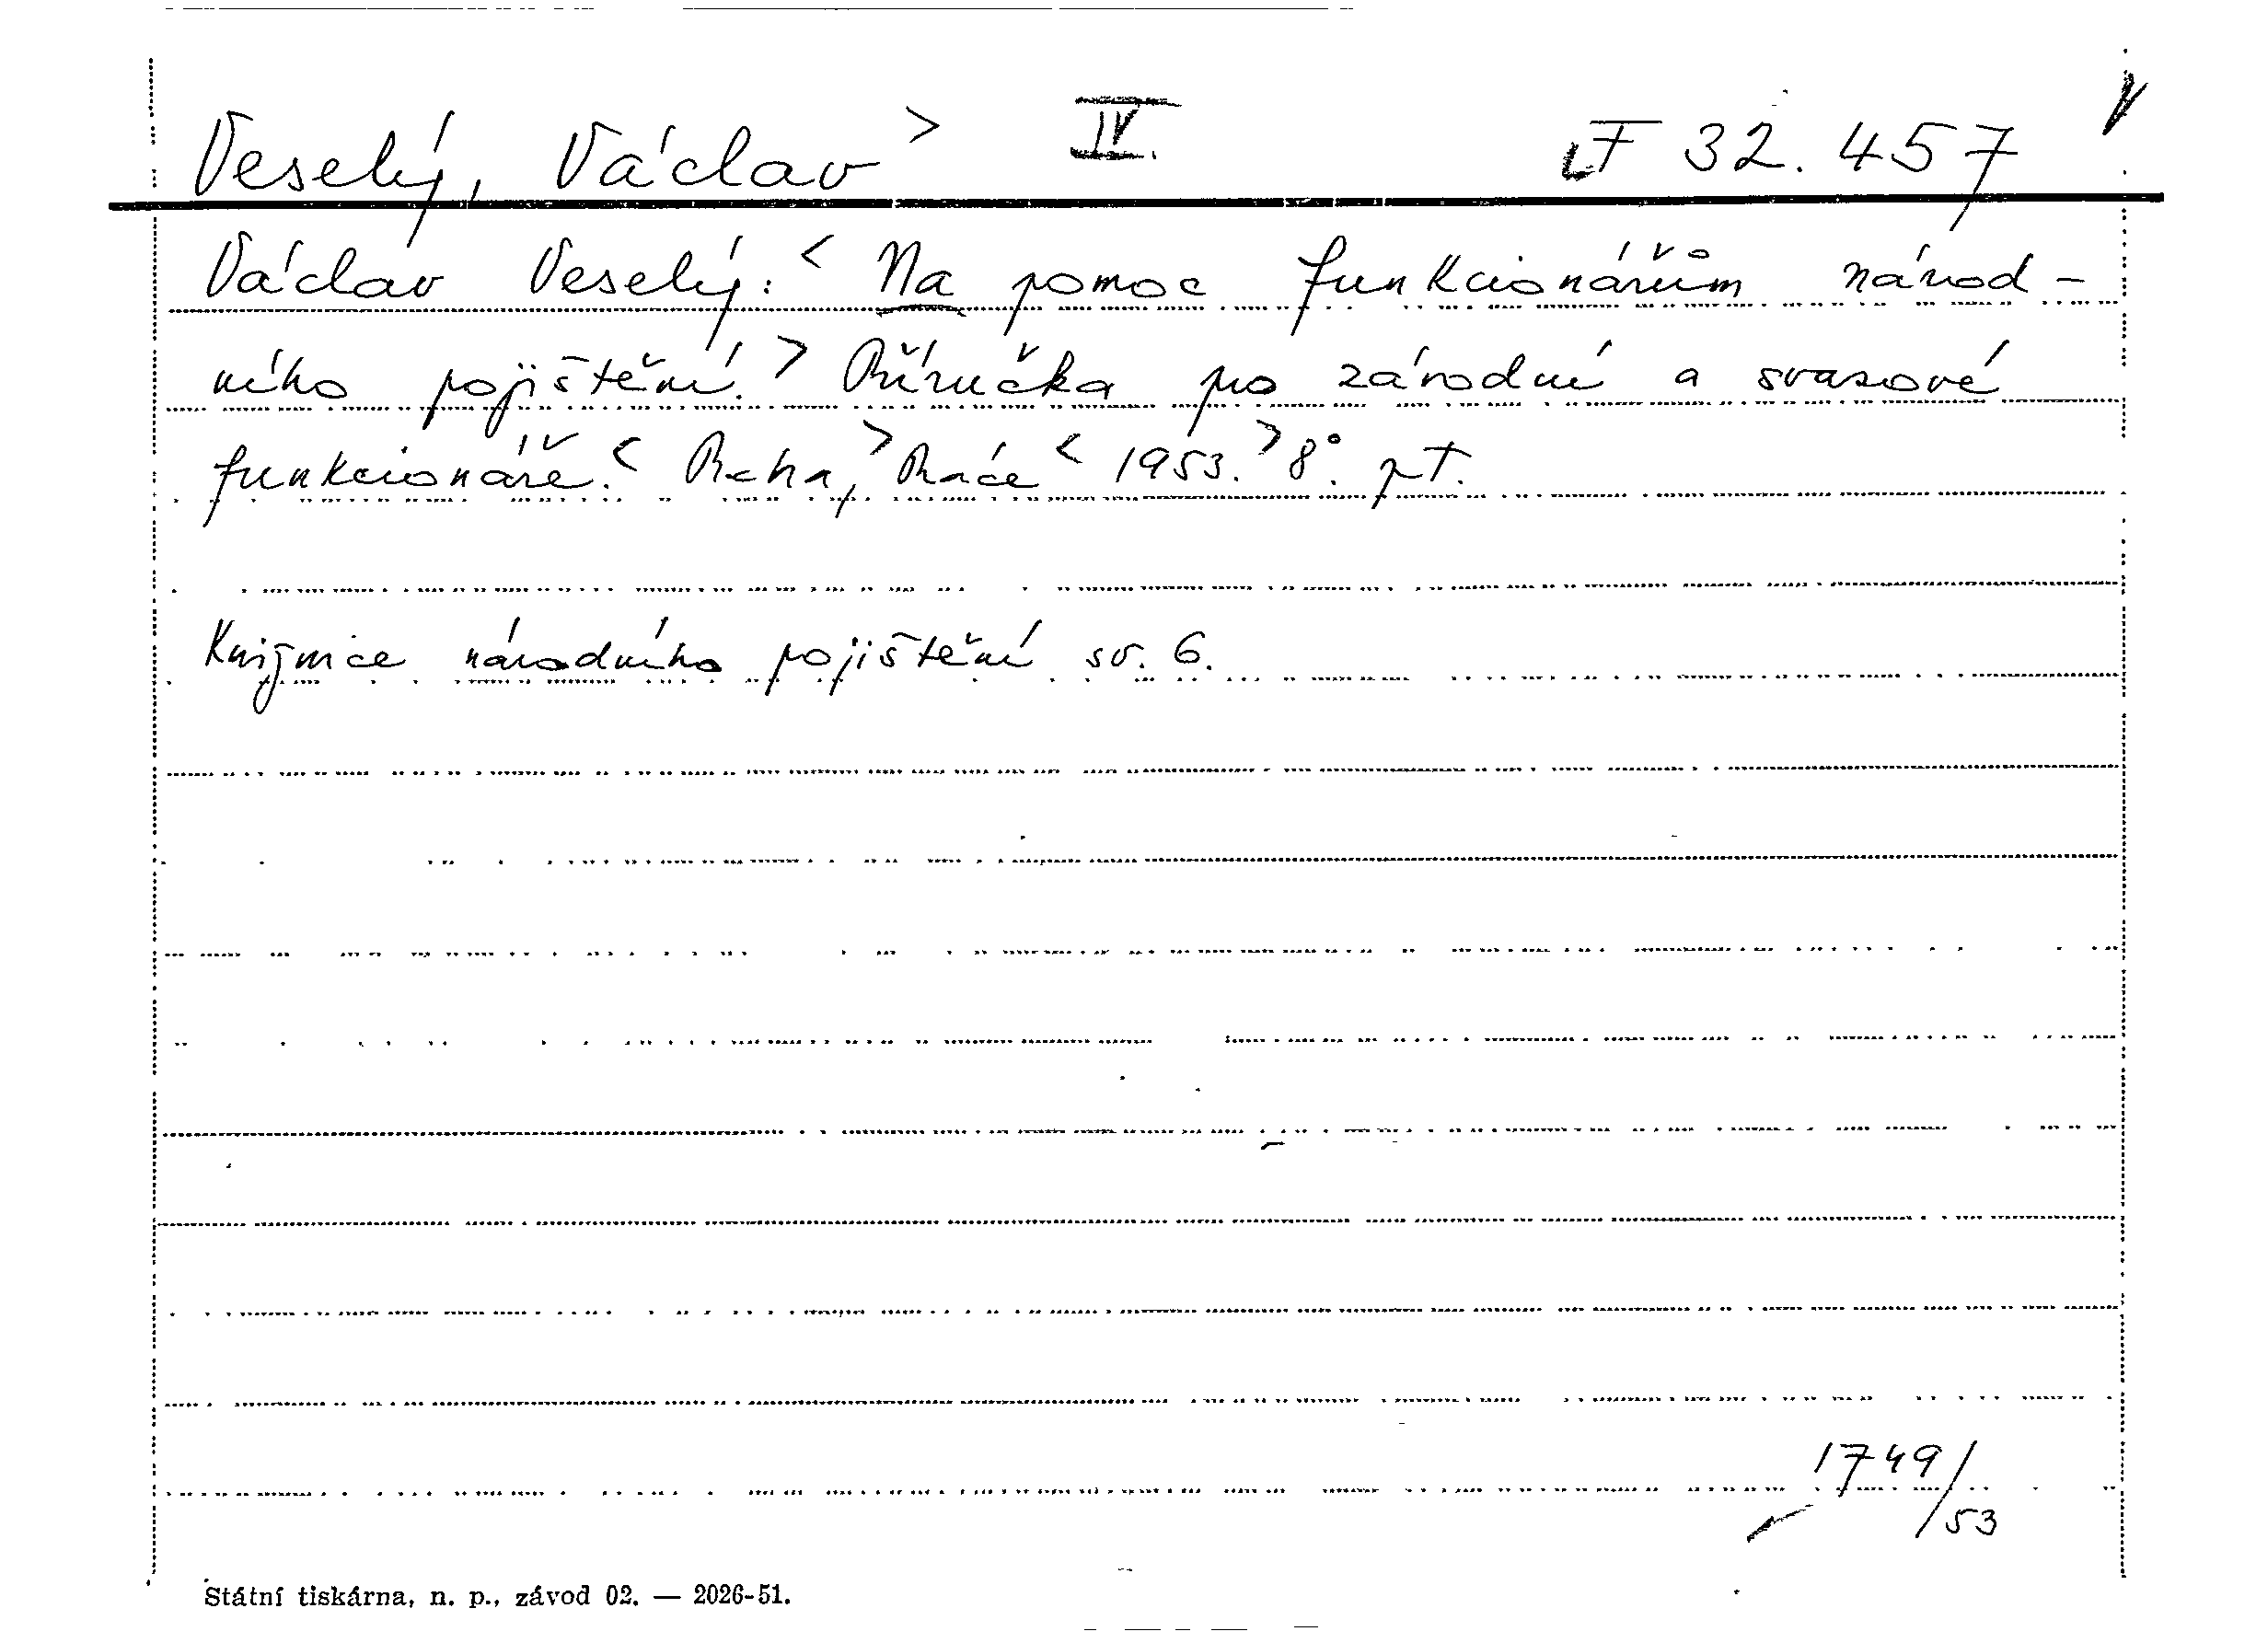 Veselý, Václav > IV. F 32.457
Václav Veselý: < Na pomoc funkcionářům národ-
ního pojištění. > Příručka pro závodní a svazové
funkcionáře. < Praha, > Práce < 1953. > 8°. pt.
Knižnice národního pojištění sv. 6.
1749/
/53
Státní tiskárna, n. p., závod 02. — 2026-51.